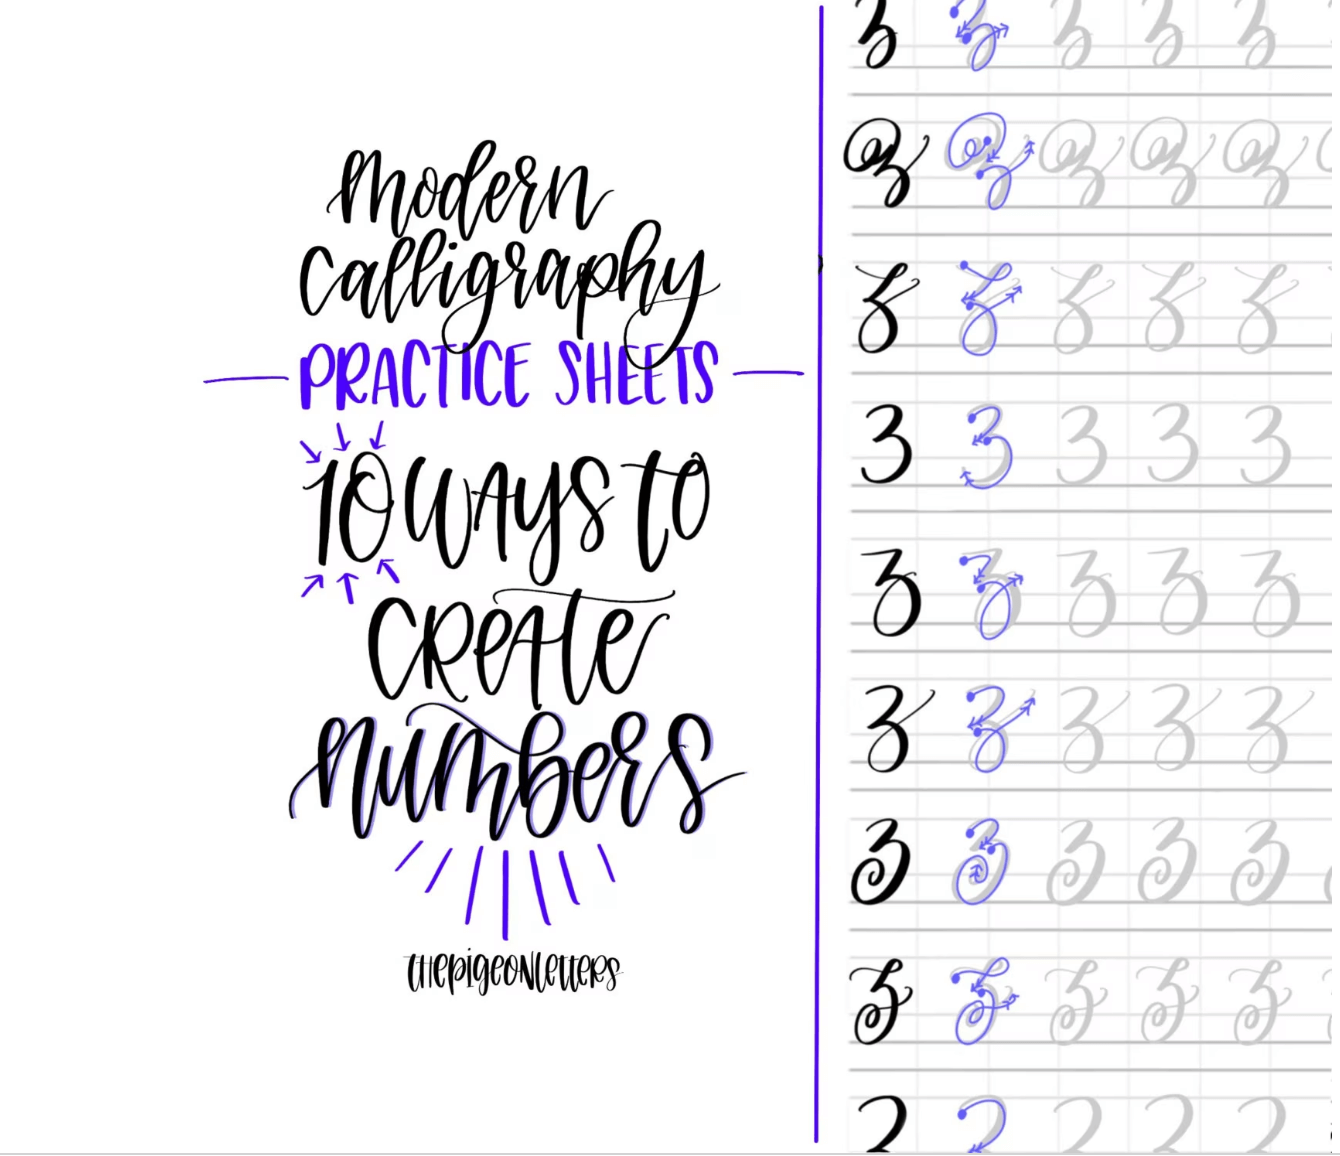 modern
calligraphy
PRACTICE SHEETS
10 WAYS TO
CREATE
numbers
THEPIGEONLETTERS
3 3 3 3 3
3 3 3 3 3
3 3 3 3 3
3 3 3 3 3
3 3 3 3 3
3 3 3 3 3
3 3 3 3 3
3 3 3 3 3
3 3 3 3 3